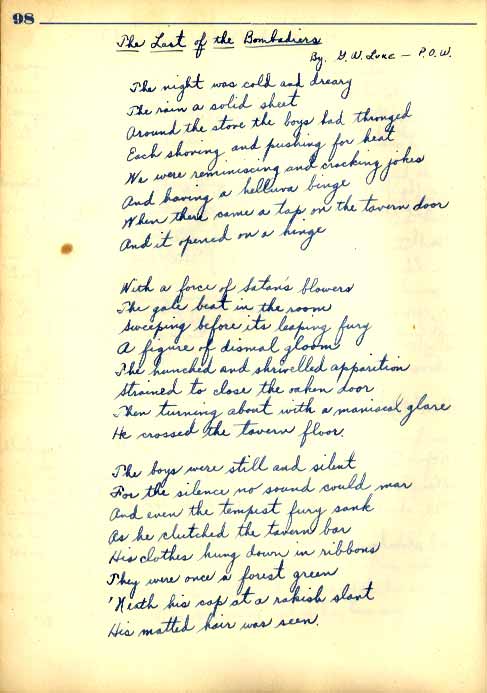 98
The Last of the Bombadiers
By. G. W. Lunc - P.O.W.
The night was cold and dreary
The rain a solid sheet
Around the stove the boys had thronged
Each shoving and pushing for heat
We were reminiscing and cracking jokes
And having a helluva binge
When there came a tap on the tavern door
And it opened on a hinge
With a force of Satan's blowers
The gale beat in the room
Sweeping before its leaping fury
A figure of dismal gloom
The hunched and shrivelled apparition
Strained to close the oaken door
Then turning about with a maniscal glare
He crossed the tavern floor.
The boys were still and silent
For the silence no sound could mar
And even the tempest fury sank
As he clutched the tavern bar
His clothes hung down in ribbons
They were once a forest green
'Neath his cap at a rakish slant
His matted hair was seen.